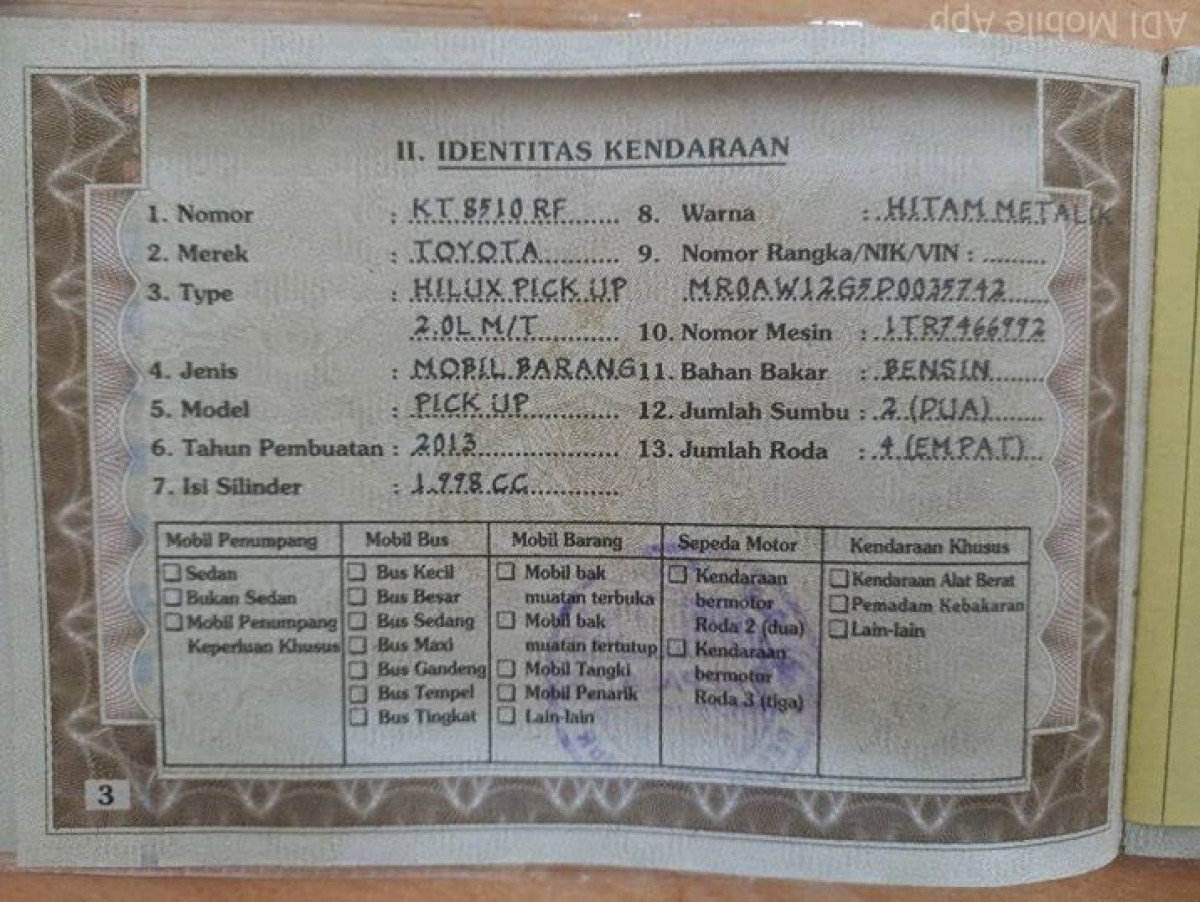 ADI Mobile App
II. IDENTITAS KENDARAAN
1. Nomor : KT 8510 RF
2. Merek : TOYOTA
3. Type : HILUX PICK UP
2.0L M/T
4. Jenis : MOBIL BARANG
5. Model : PICK UP
6. Tahun Pembuatan : 2013
7. Isi Silinder : 1.998 CC
8. Warna : HITAM METALIK
9. Nomor Rangka/NIK/VIN :
MR0AW12G5D0035742
10. Nomor Mesin : 1TR7466992
11. Bahan Bakar : BENSIN
12. Jumlah Sumbu : 2 (DUA)
13. Jumlah Roda : 4 (EMPAT)
Mobil Penumpang
Sedan
Bukan Sedan
Mobil Penumpang
Keperluan Khusus
Mobil Bus
Bus Kecil
Bus Besar
Bus Sedang
Bus Maxi
Bus Gandeng
Bus Tempel
Bus Tingkat
Mobil Barang
Mobil bak
muatan terbuka
Mobil bak
muatan tertutup
Mobil Tangki
Mobil Penarik
Lain-lain
Sepeda Motor
Kendaraan
bermotor
Roda 2 (dua)
Kendaraan
bermotor
Roda 3 (tiga)
Kendaraan Khusus
Kendaraan Alat Berat
Pemadam Kebakaran
Lain-lain
3